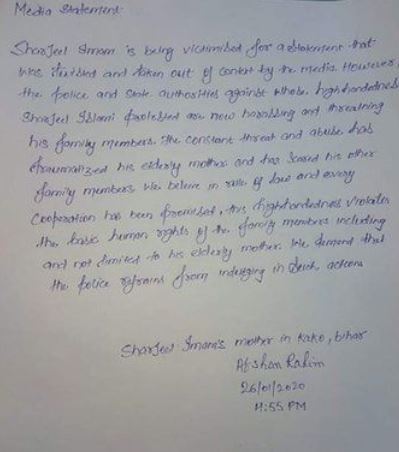 Media Statement
Sharjeel Imam is being victimised for a statement that
was twisted and taken out of context by the media. However
the police and State authorities against whose highhandedness
Sharjeel Islami protested are now harassing and threatning
his family members. The constant threat and abuse has
traumatized his elderly mother and has scared his other
family members We beleive in rule of law and every
cooperation has been promised, this highhandedness violates
the basic human rights of the family members including
and not limited to his elderly mother. We demand that
the police refrains from indulging in such actions
Sharjeel Imam's mother in Kako, bihar
Afshan Rahim
26/01/2020
4:55 PM